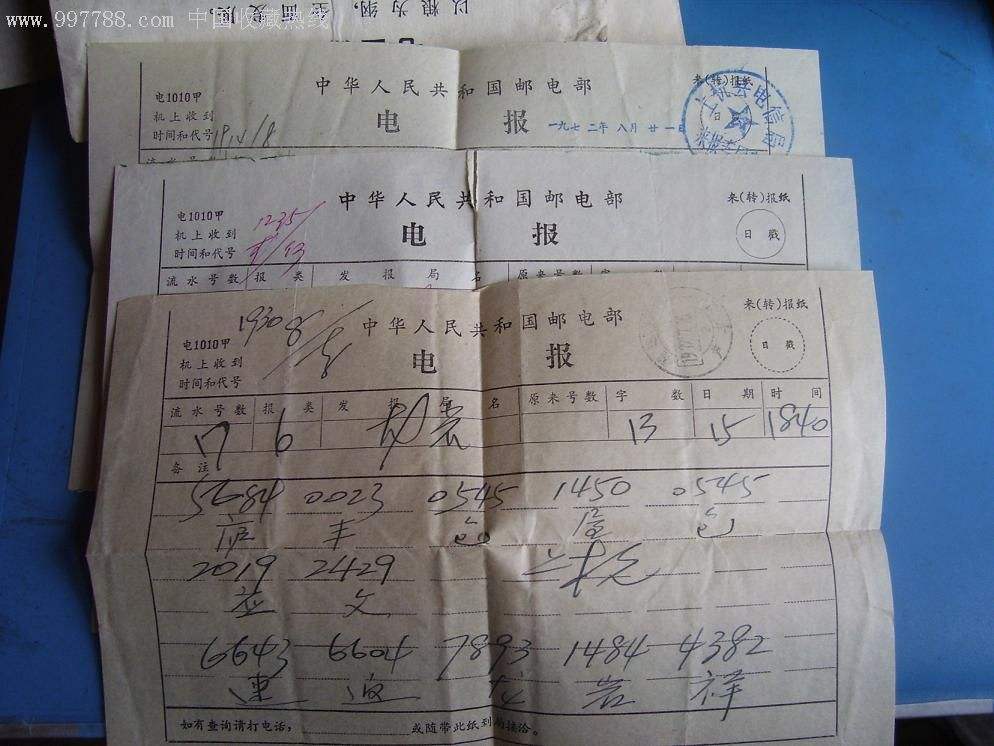 www.997788.com 中国收藏热线
以粮为纲，全面发展，
中华人民共和国邮电部
来(转)报纸
电1010甲
机上收到
时间和代号
电 报
一九七二年八月廿一日
上杭县电信局
日
流水号
中华人民共和国邮电部
来(转)报纸
电1010甲
机上收到
时间和代号
1235
电 报
日 戳
流水号数 报类 发报局名 原来号数 字数 日期 时间
1930
中华人民共和国邮电部
来(转)报纸
电1010甲
机上收到
时间和代号
电 报
日 戳
流水号数 报类 发报局名 原来号数 字数 日期 时间
17 6 13 15 1840
备注
5684 0023 0545 1450 0545
丰 包 屋 包
2019 2429
文
6643 6604 7893 1484 4382
速返 龙 岩 祥
如有查询请打电话， 或随带此纸到 接洽。